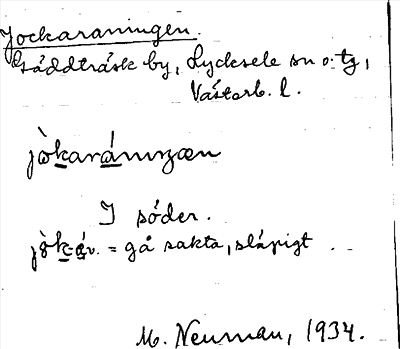 Jockaraningen.
Gäddträsk by, Lycksele sn o. tg,
Västerb. l.
jòkaránıŋæn
I söder.
jòkáv. = gå sakta, släpigt
M. Neuman, 1934.